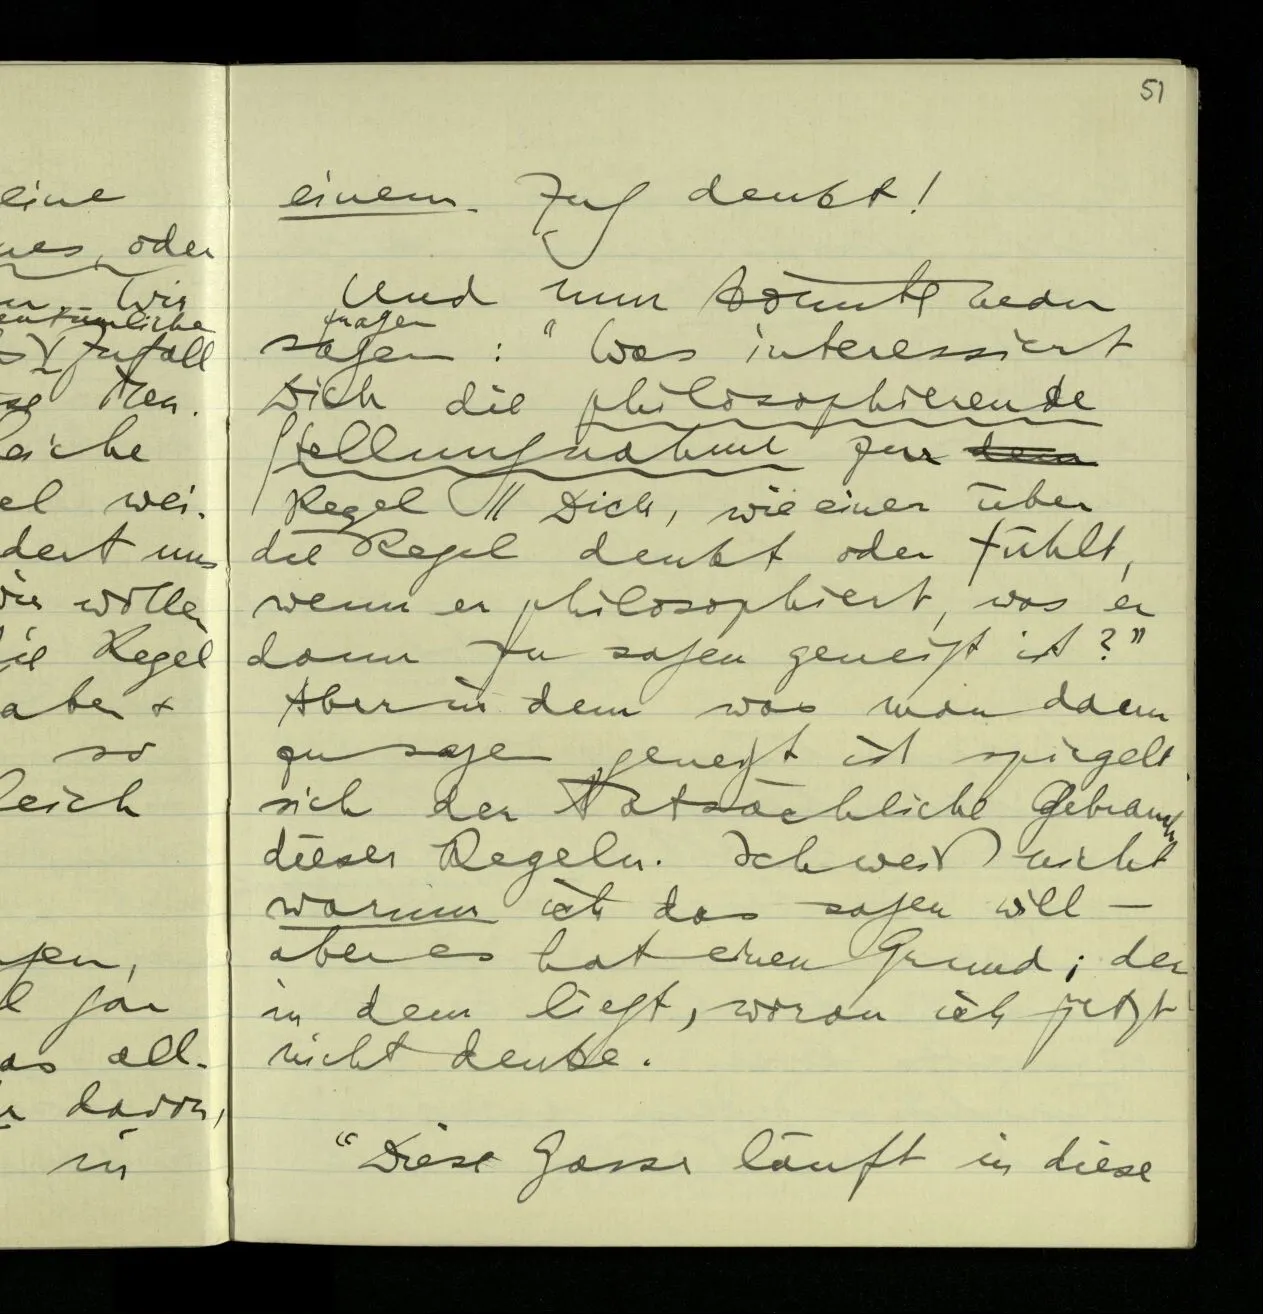 51
eine
oder
Wir
Zufall
wei-
dert uns
wollen
die Regel
aber &
so
all-
davon,
in
einem Zug denkt!
Und nun könnte jeder
fragen
sagen : "Was interessiert
Dich die philosophierende
Stellungnahme zur dem
Regel // Dich, wie einer über
die Regel denkt oder fühlt,
wenn er philosophiert, was er
dann zu sagen geneigt ist?"
Aber in dem was man dann
zu sagen geneigt ist spiegelt
sich der tatsächliche Gebrauch
dieser Regeln. Ich weiß nicht
warum ich das sagen will –
aber es hat einen Grund; der
in dem liegt, woran ich jetzt
nicht denke.
"Diese Gasse läuft in diese